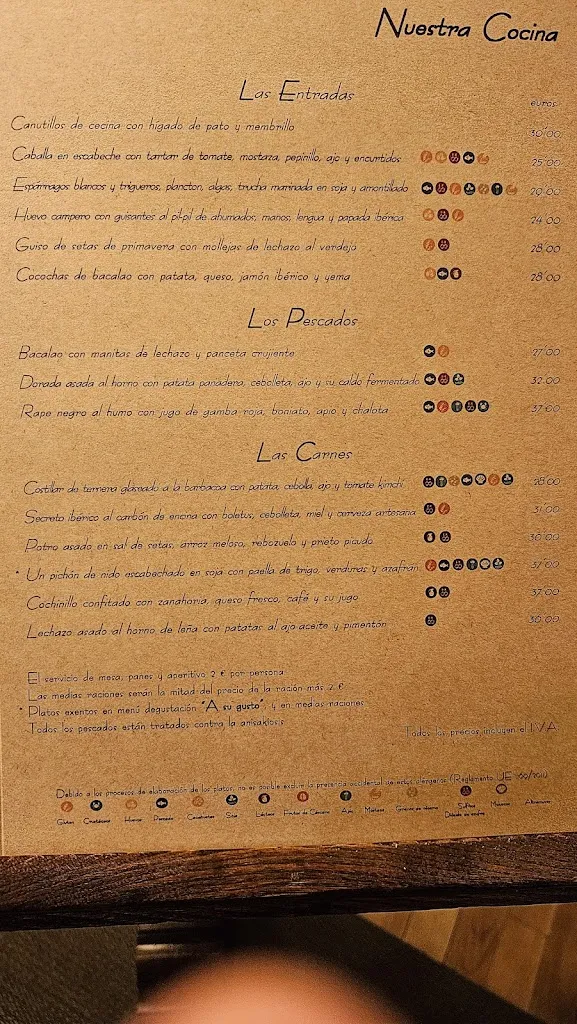 Nuestra Cocina
Las Entradas
euros
Canutillos de cecina con hígado de pato y membrillo 30'00
Caballa en escabeche con tartar de tomate, mostaza, pepinillo, ajo y encurtidos 25'00
Espárragos blancos y trigueros, plancton, algas, trucha marinada en soja y amontillado 29'00
Huevo campero con guisantes al pil-pil de ahumados, manos, lengua y papada ibérica 24'00
Guiso de setas de primavera con mollejas de lechazo al verdejo 28'00
Cocochas de bacalao con patata, queso, jamón ibérico y yema 28'00
Los Pescados
Bacalao con manitas de lechazo y panceta crujiente 27'00
Dorada asada al horno con patata panadera, cebolleta, ajo y su caldo fermentado 32'00
Rape negro al humo con jugo de gamba roja, boniato, apio y chalota 37'00
Las Carnes
Costillar de ternera glaseado a la barbacoa con patata, cebolla, ajo y tomate kimchi 28'00
Secreto ibérico al carbón de encina con boletus, cebolleta, miel y cerveza artesana 31'00
Potro asado en sal de setas, arroz meloso, rebozuelo y prieto picudo 30'00
* Un pichón de nido escabechado en soja con paella de trigo, verduras y azafrán 37'00
Cochinillo confitado con zanahoria, queso fresco, café y su jugo 37'00
Lechazo asado al horno de leña con patatas al ajo aceite y pimentón 30'00
El servicio de mesa, panes y aperitivo 2 € por persona
Las medias raciones serán la mitad del precio de la ración más 2 €
* Platos exentos en menú degustación "A su gusto", y en medias raciones
Todos los pescados están tratados contra la anisakiosis
Todos los precios incluyen el I.V.A.
Debido a los procesos de elaboración de los platos, no es posible excluir la presencia accidental de estos alérgenos (Reglamento UE
Gluten Crustáceos Huevos Pescado Cacahuetes Soja Lácteos Frutos de Cáscara Apio Mostaza Granos de sésamo Sulfitos Moluscos Altramuces